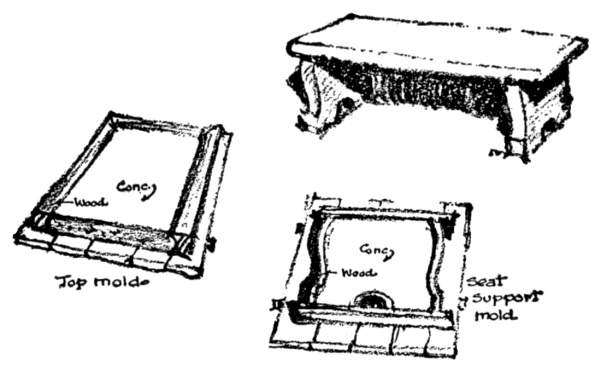 Conc.
Wood
Top mold.
Conc.
Wood
Seat
Support
mold